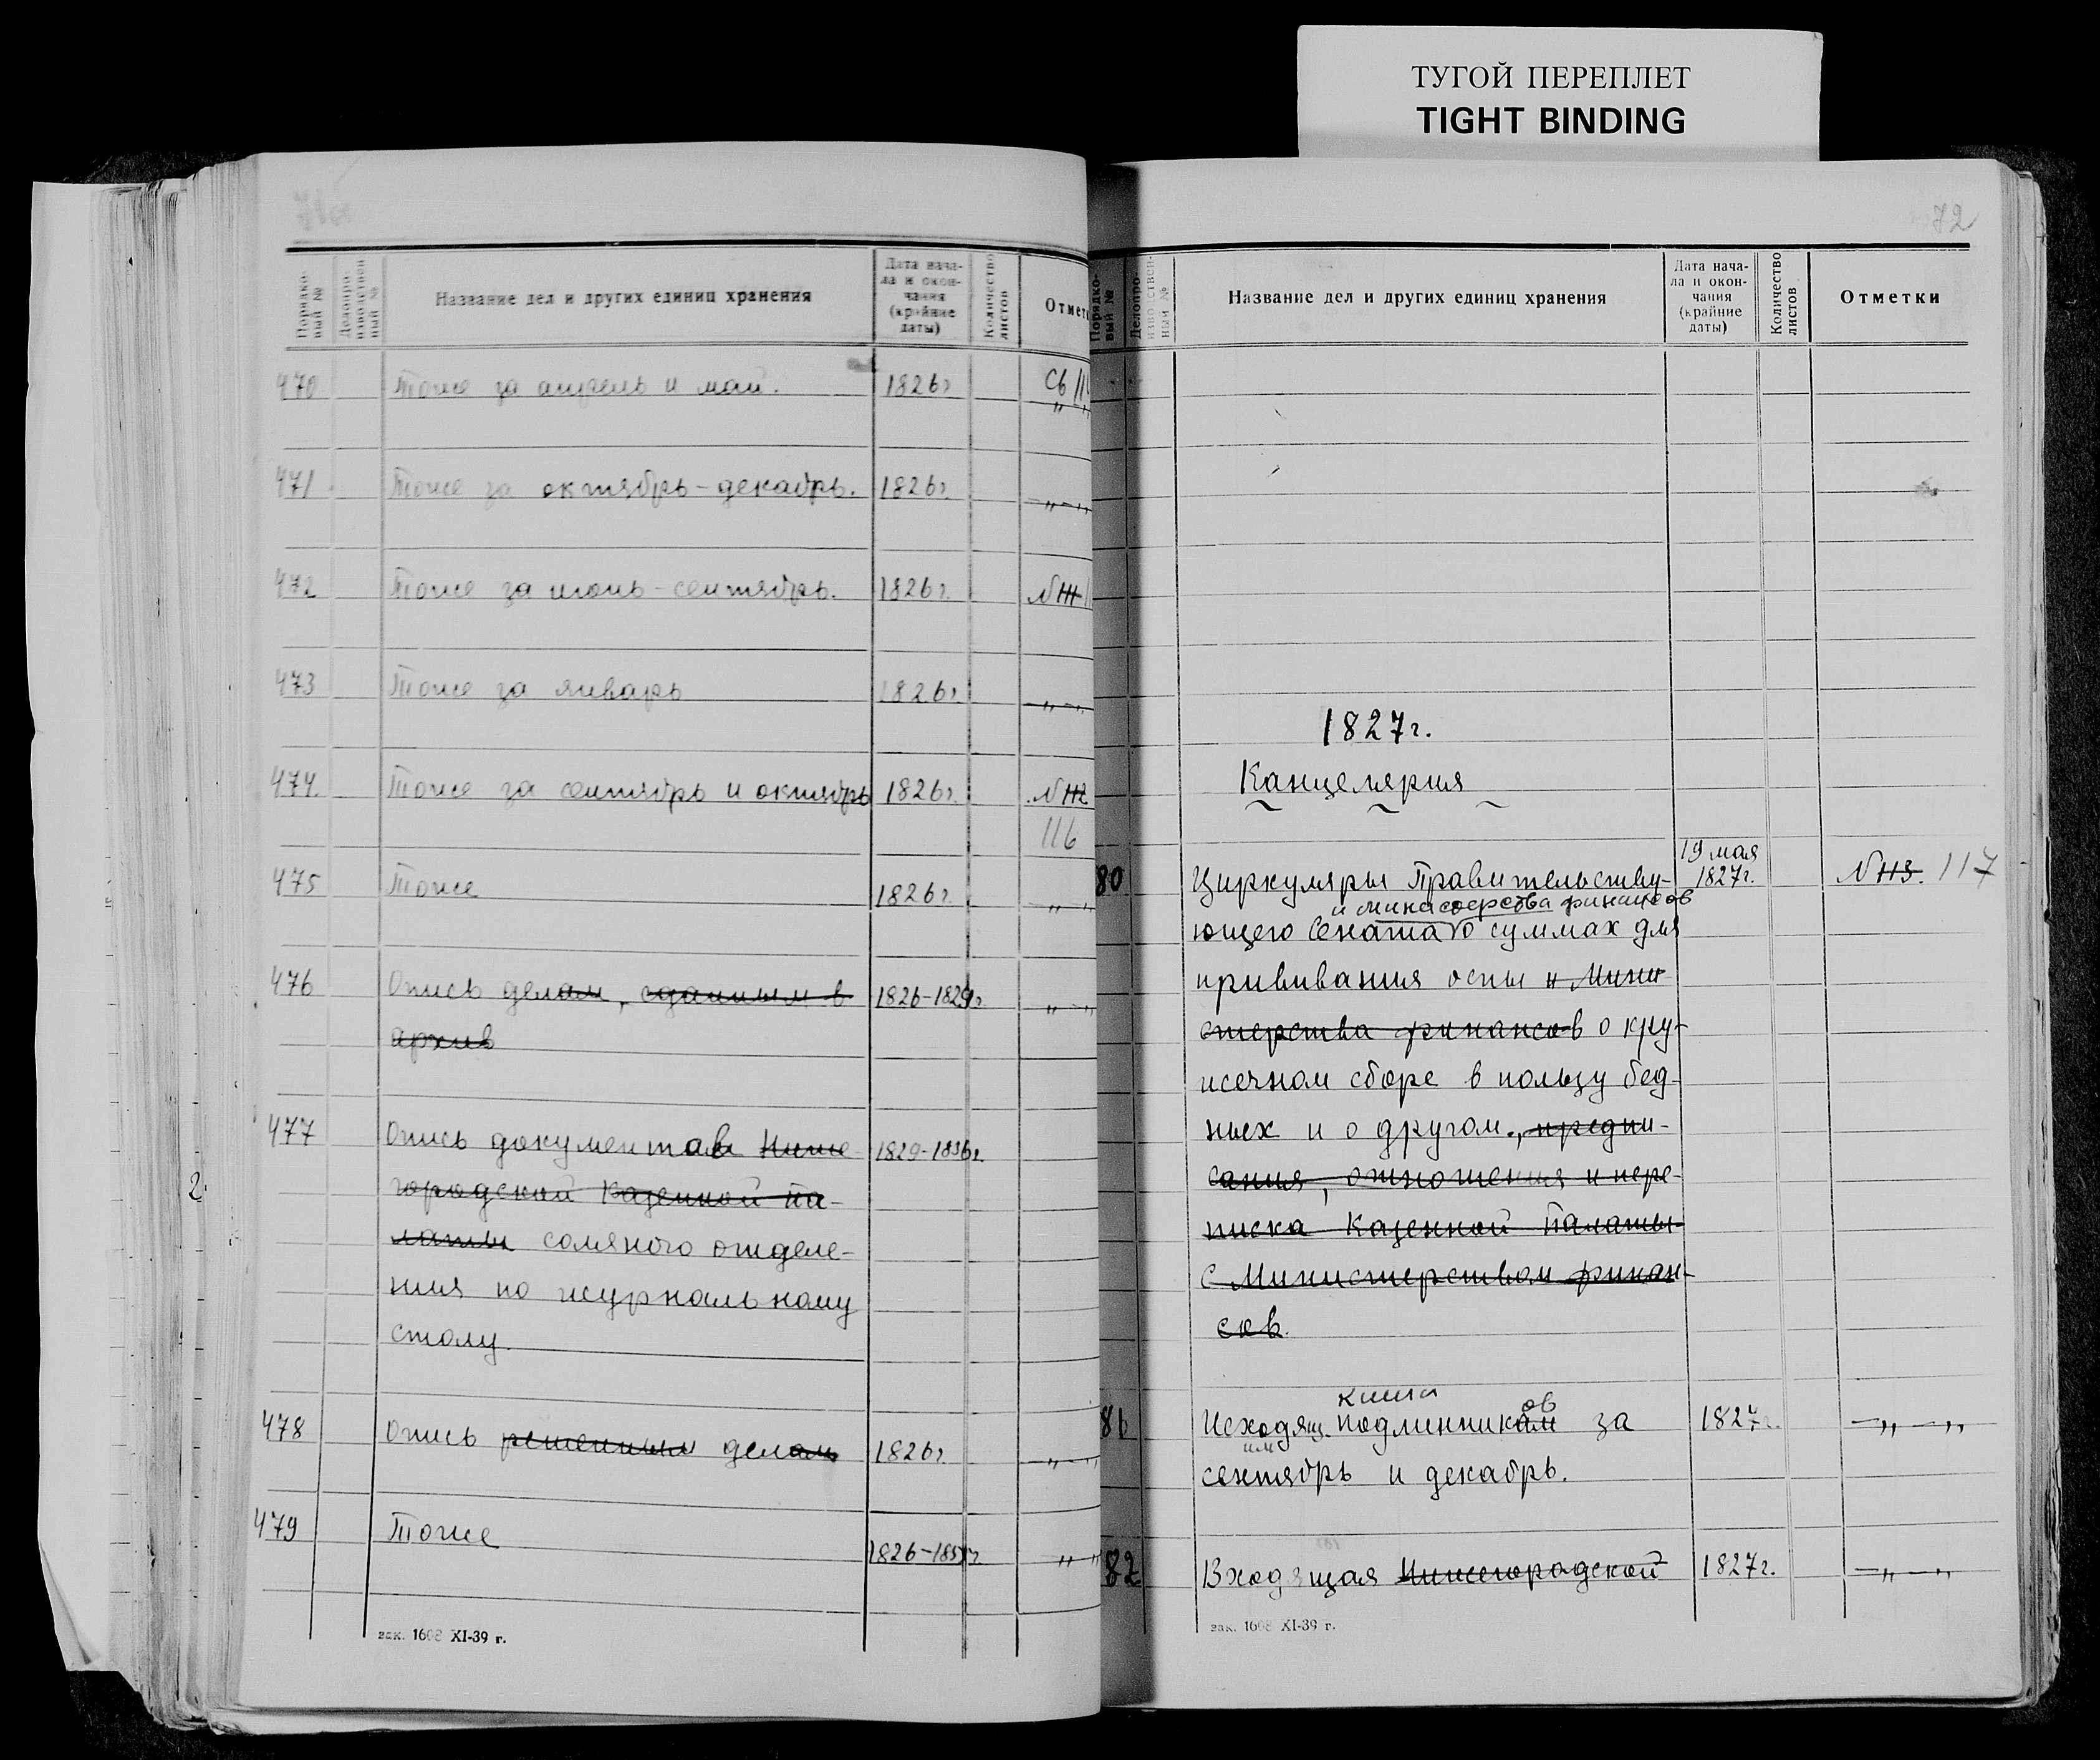 ТУГОЙ ПЕРЕПЛЕТ
TIGHT BINDING
Порядко-
вый №
Делопро-
изводствен-
ный №
Название дел и других единиц хранения
Дата нача-
ла и окон-
чания
(крайние
даты)
Количество
листов
Отметк
470 Тоже за апрель и май. 1826г Св 11
" "
471 Тоже за октябрь-декабрь. 1826г. " — "
472 Тоже за июнь-сентябрь. 1826г. N 111
473 Тоже за январь 1826г. " — "
474. Тоже за сентябрь и октябрь 1826г. N 112
116
475 Тоже 1826г. " "
476 Опись делам, сданным в 1826-1829г. " — "
архив
477 Опись документов Ниже- 1829-1836г.
городской Казенной Па-
латы соляного отделе-
ния по журнальному
столу.
2
478 Опись решенным делам 1826г. " — "
479 Тоже 1826-185 г. " "
зак. 1608 XI-39 г.
72
Порядко-
вый №
Делопро-
изводствен-
ный №
Название дел и других единиц хранения
Дата нача-
ла и окон-
чания
(крайние
даты)
Количество
листов
Отметки
1827г.
Канцелярия
19 мая
80 Циркуляры Правительству- 1827г. N 113. 117
и министерства финансов
ющего Сената о суммах для
прививания оспы и Мини
стерства финансов о кру-
жечном сборе в пользу бед-
ных и о другом., предпи-
сания, отношения и пере-
писка Казенной Палаты
с Министерством финан-
сов.
книга ов
81 Исходящ. подлинникам за 1827г. — " — "
им
сентябрь и декабрь.
82 Входящая Нижегородской 1827г. — " — "
зак. 1608 XI-39 г.